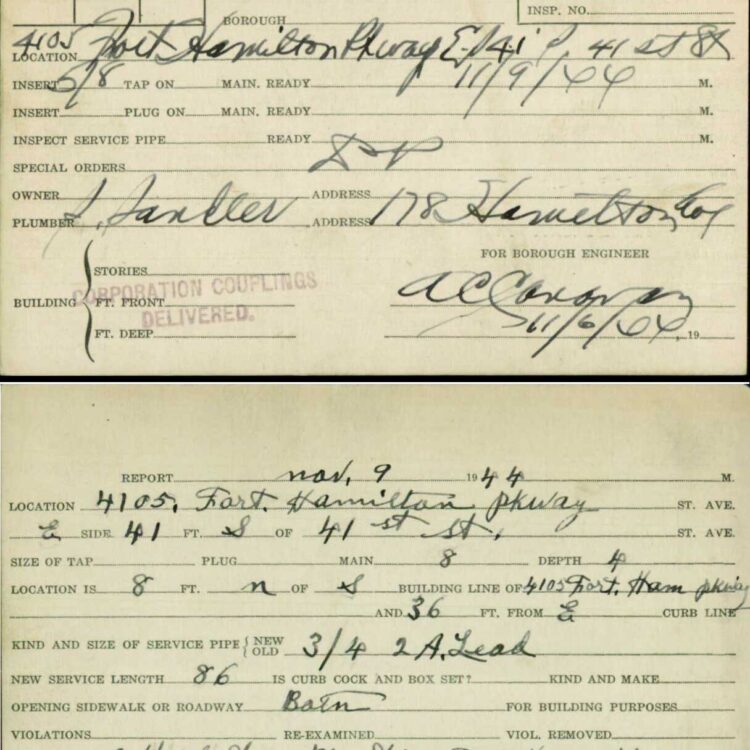 BOROUGH
INSP. NO.
LOCATION 4105 Fort Hamilton Pkway E. 41' S. 41 st St
INSERT 5/8 TAP ON MAIN. READY 11/9/44 M.
INSERT PLUG ON MAIN. READY M.
INSPECT SERVICE PIPE READY M.
SPECIAL ORDERS
OWNER ADDRESS
PLUMBER Sandler ADDRESS 178 Hamilton
FOR BOROUGH ENGINEER
BUILDING
STORIES
FT. FRONT
FT. DEEP
CORPORATION COUPLINGS
DELIVERED.
11/6/44, 19
REPORT Nov. 9 1944 M.
LOCATION 4105. Fort. Hamilton pkway ST. AVE.
E SIDE 41 FT. S OF 41 st st. ST. AVE.
SIZE OF TAP PLUG MAIN 8 DEPTH 4
LOCATION IS 8 FT. n OF S BUILDING LINE OF 4105 Fort. Ham pkway
AND 36 FT. FROM E CURB LINE
KIND AND SIZE OF SERVICE PIPE { NEW OLD 3/4 2 A. Lead
NEW SERVICE LENGTH 86 IS CURB COCK AND BOX SET? KIND AND MAKE
OPENING SIDEWALK OR ROADWAY Both FOR BUILDING PURPOSES
VIOLATIONS RE-EXAMINED VIOL. REMOVED